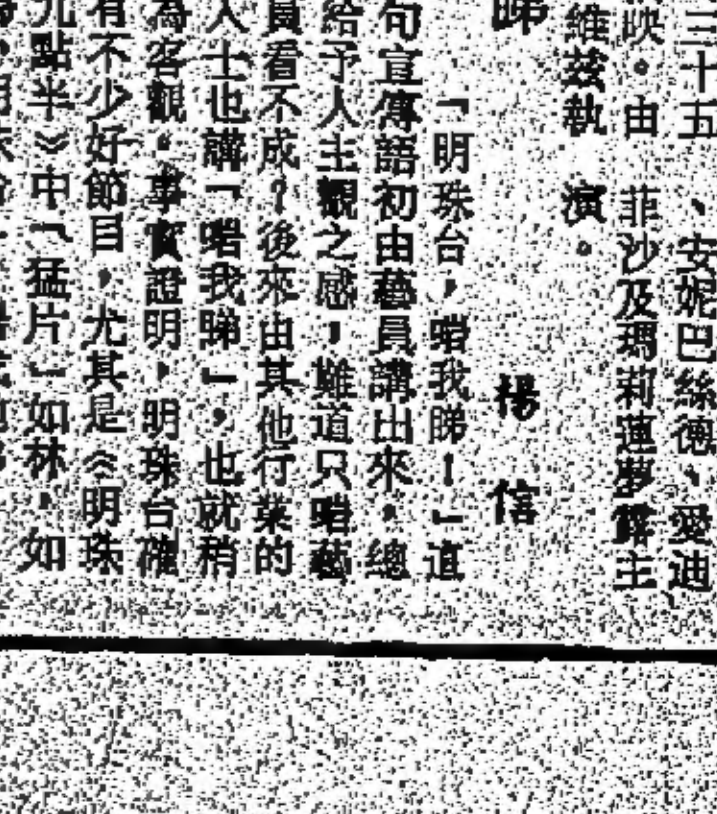 三十五、安妮巴絲德、愛迪
映。由菲沙及瑪莉蓮夢露主
維茲執演。
睇
楊信
「明珠台,啱我睇!」這
句宣傳語初由藝員講出來,總
給予人主觀之感,難道只啱藝
員看不成?後來由其他行業的
人士也講「啱我睇」,也就稍
為客觀。事實證明,明珠台確
有不少好節目,尤其是《明珠
九點半》中「猛片」如林,如